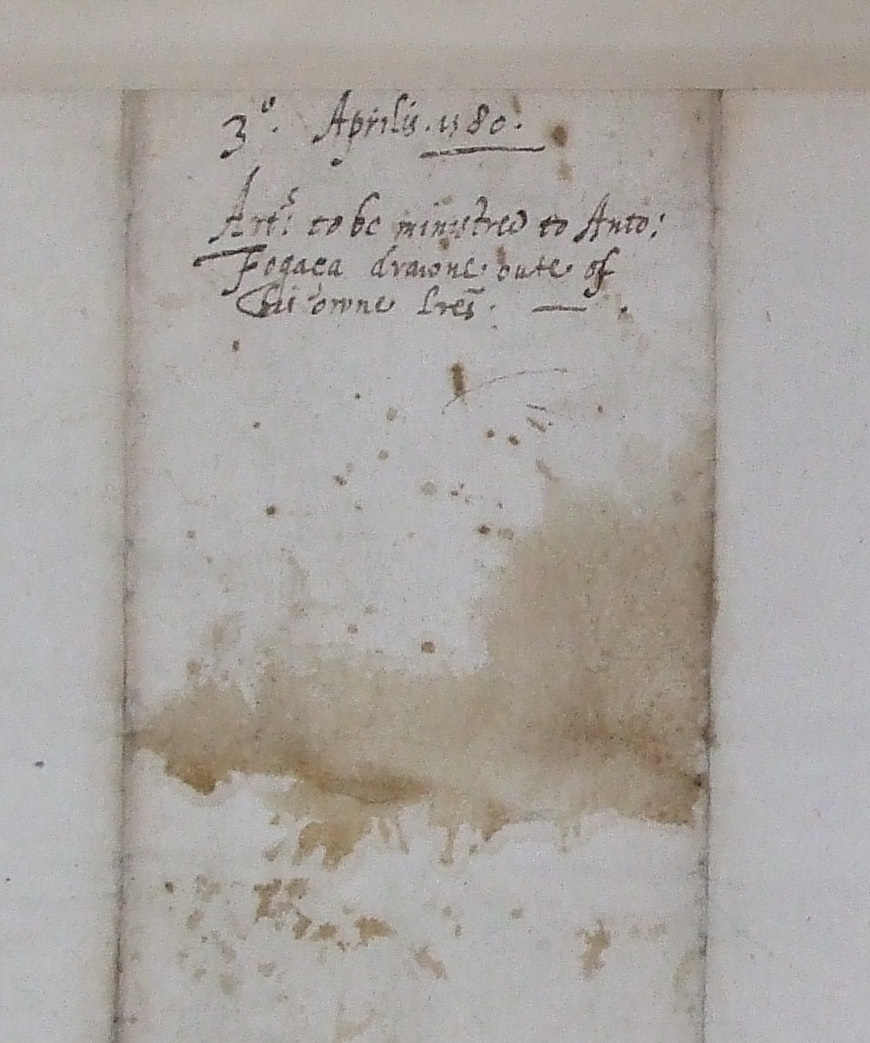 3º. Aprilis. 1580.
Artˢ: to be ministred to Anto:
Fogaca drawne oute of
his owne lrēs.